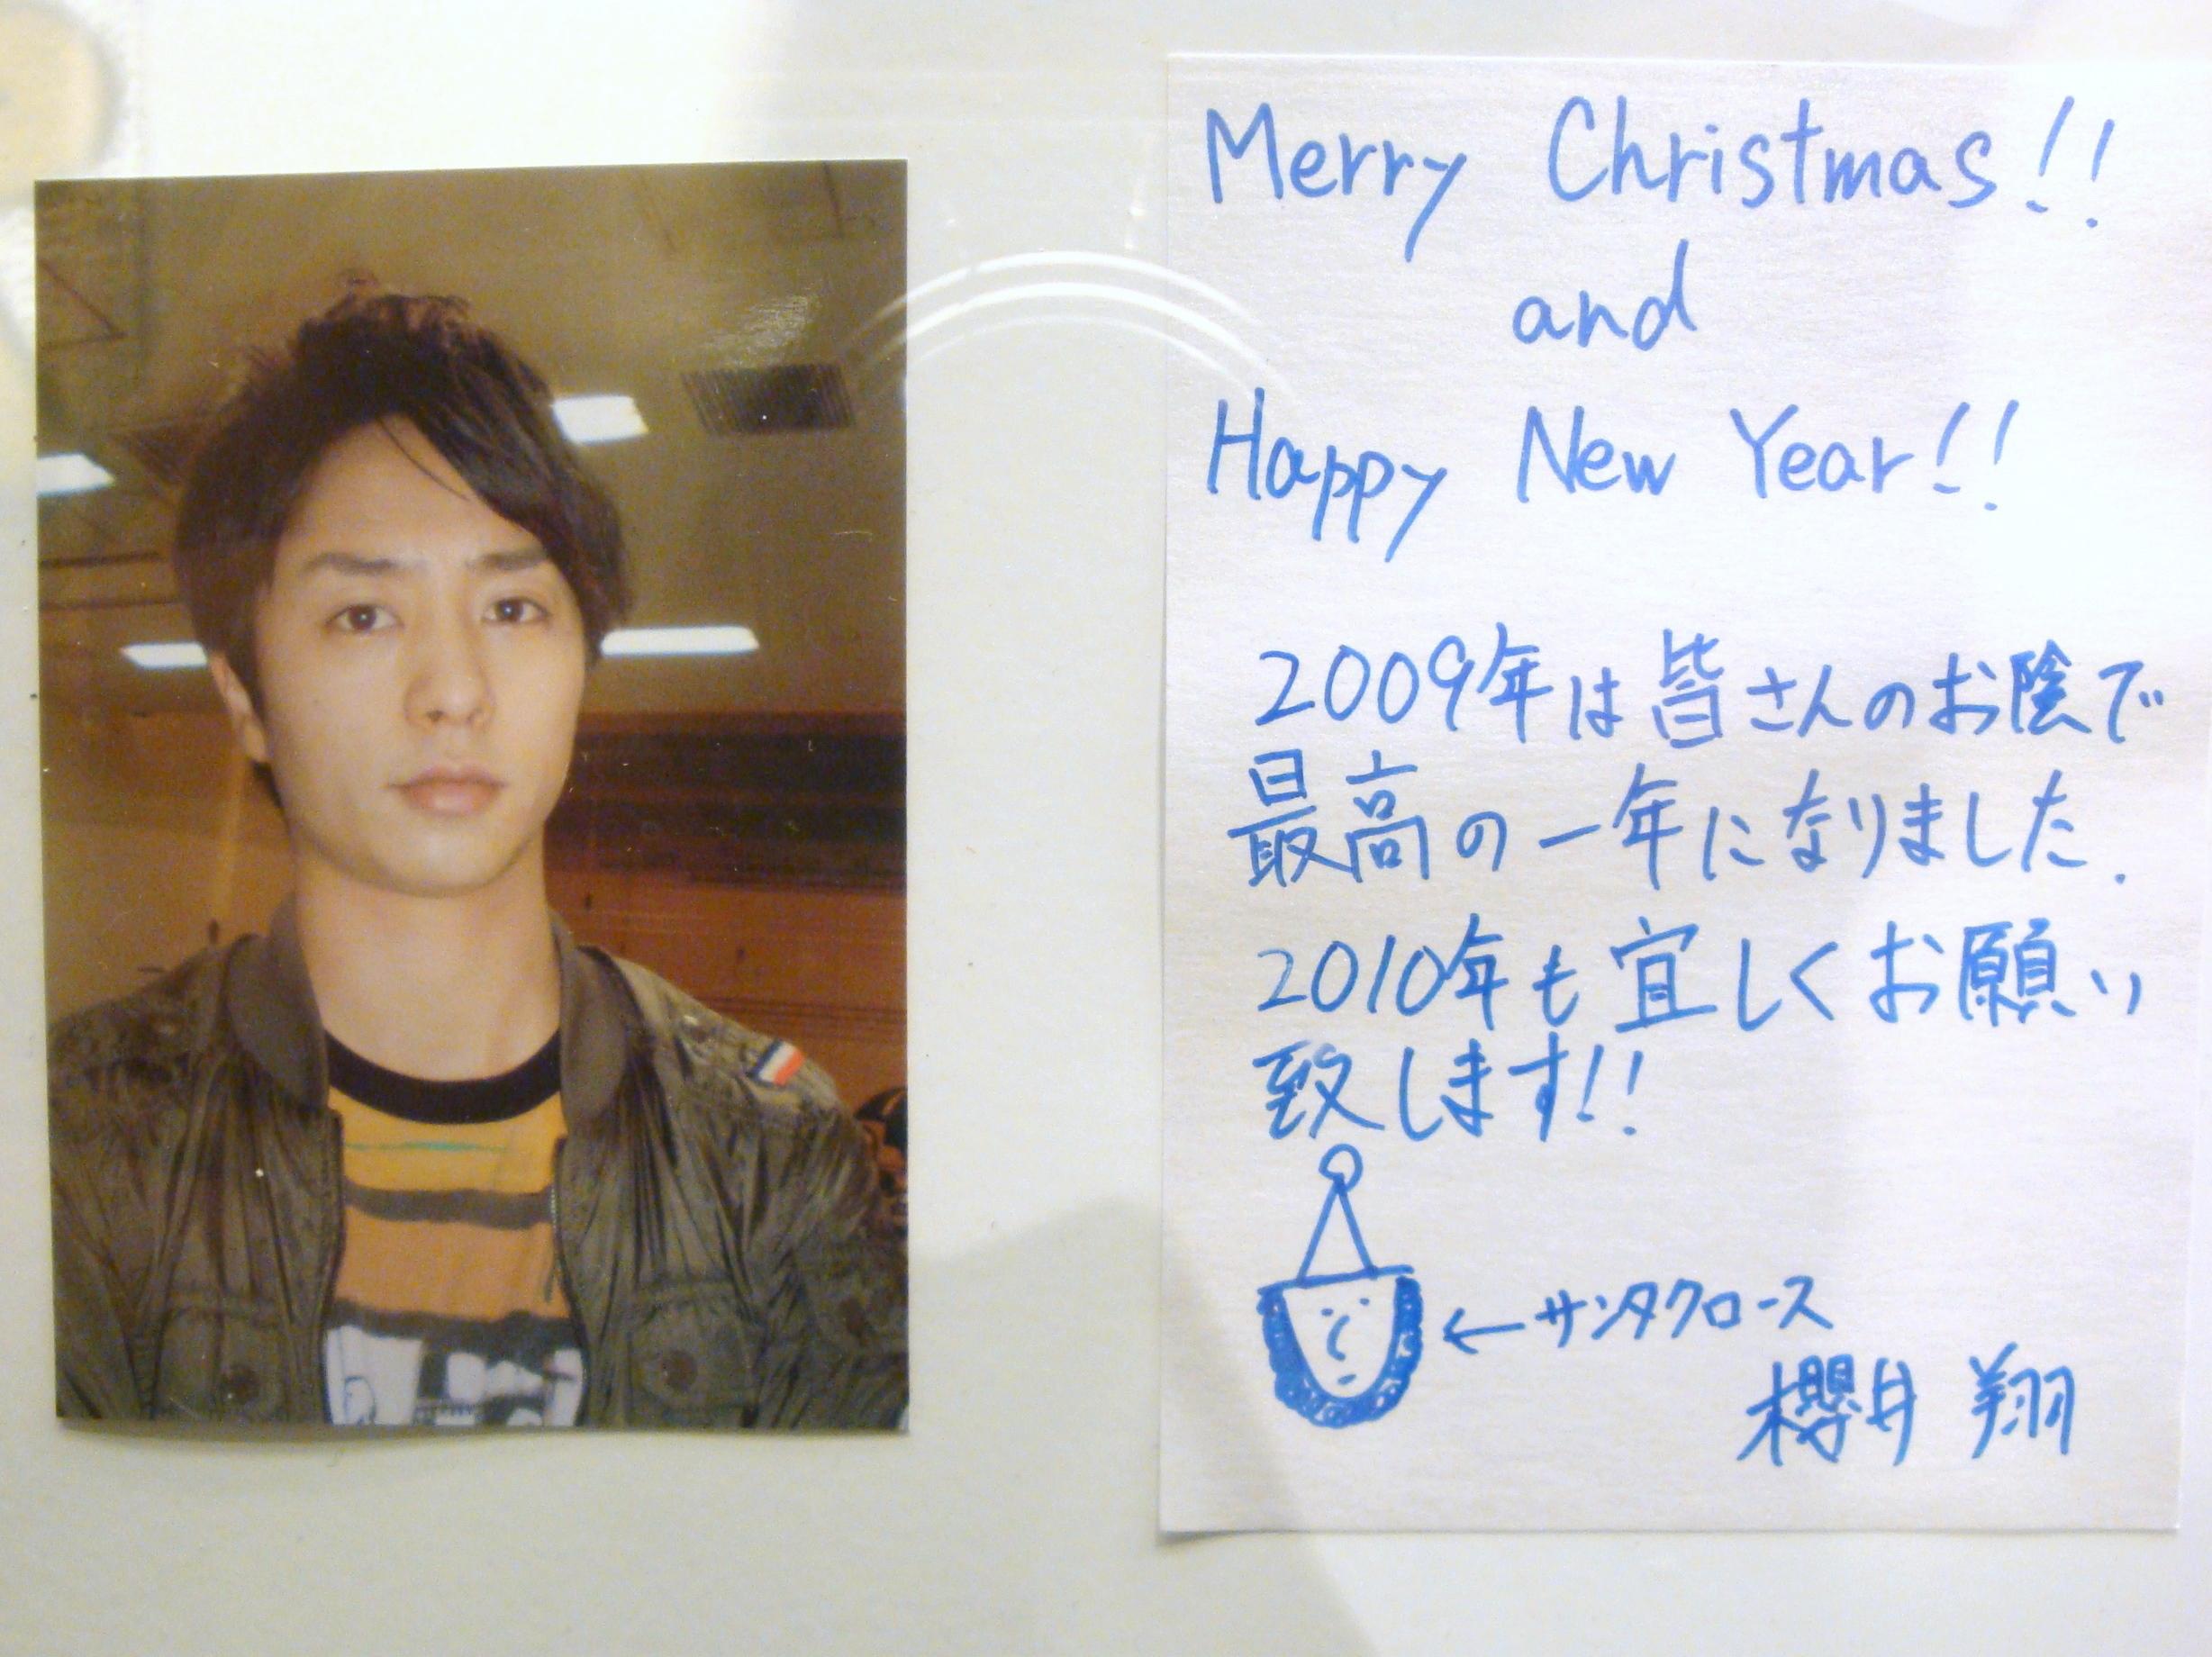 Merry Christmas!!
and
Happy New Year!!
2009年は皆さんのお陰で
最高の一年になりました.
2010年も宜しくお願い
致します!!
←サンタクロース
櫻井 翔